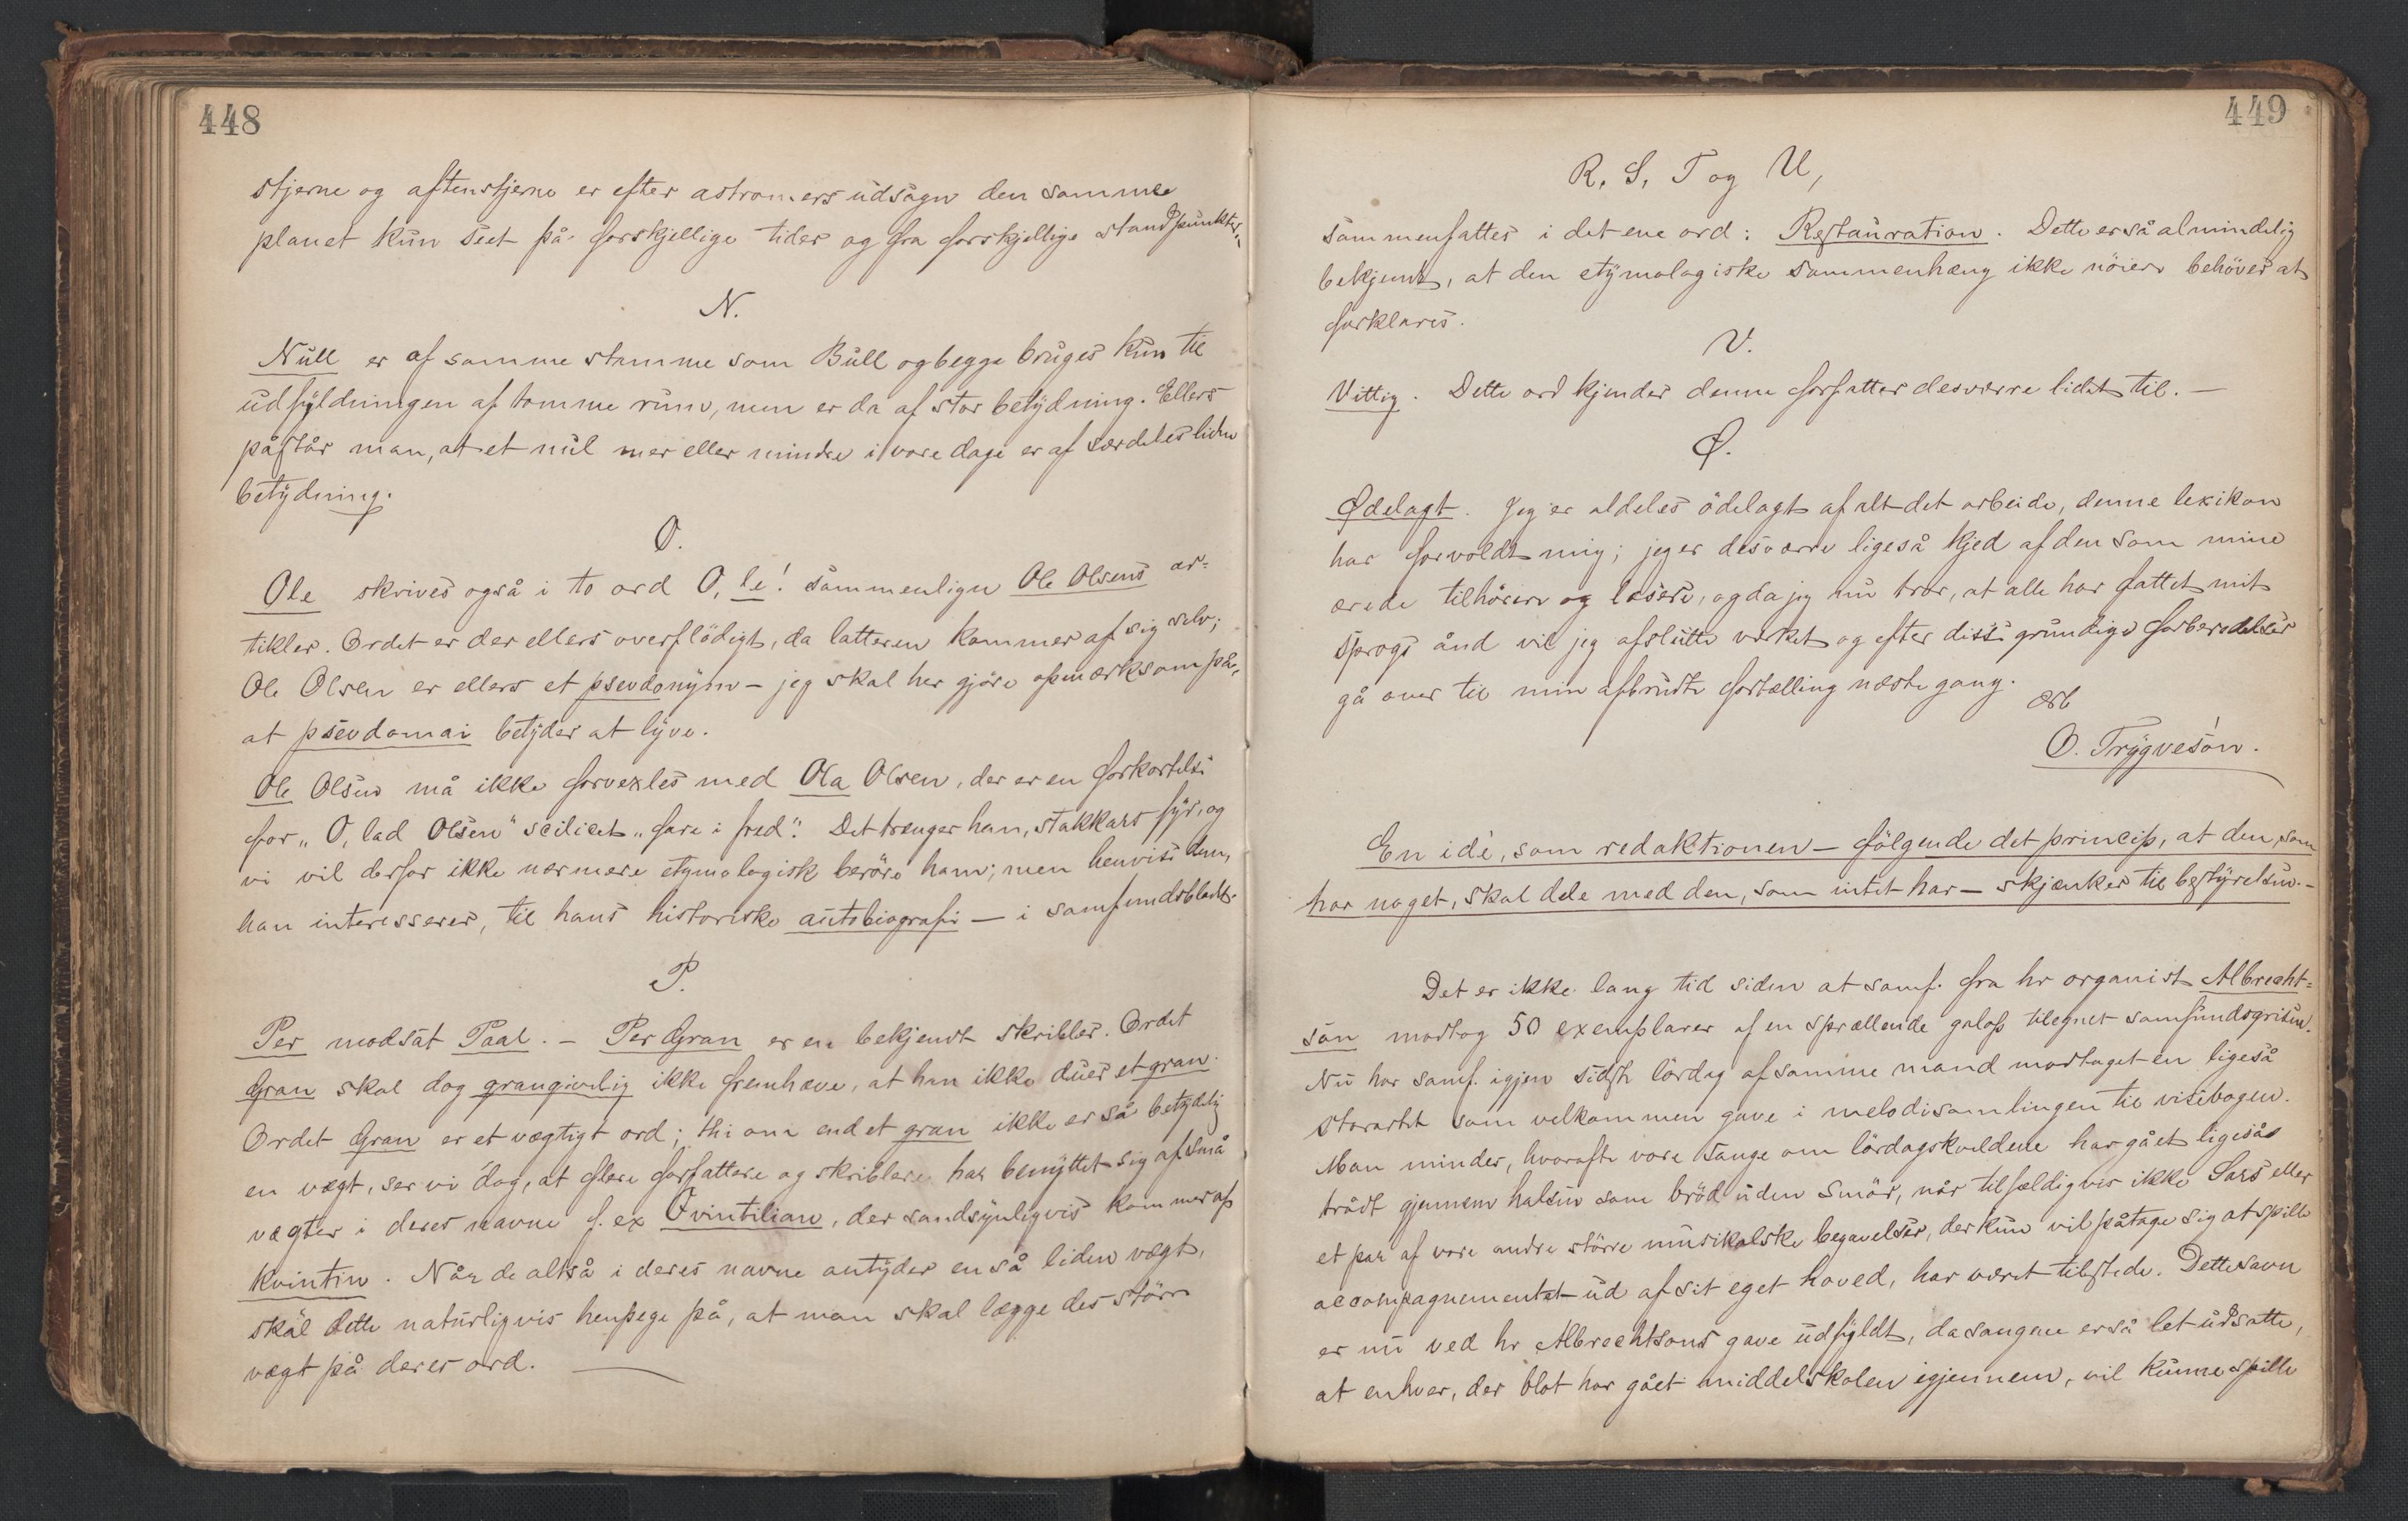 448
stjerne og aftenstjerne er efter astromers udsagn den samme
planet kun seet på forskjellige tider og fra forskjellige standpunkter.
N.
Null er af samme stamme som Bull og begge bruges kun til
udfyldningen af tomme rum, men er da af stor betydning. Ellers
påstår man, at et nul mer eller mindre i vore dage er af særdeles liden
betydning.
O.
Ole skrives også i to ord O, le! sammenlign Ole Olsens ar=
tikler. Ordet er der ellers overflödigt, da latteren kommer af sig selv;
Ole Olsen er ellers et psevdonym – jeg skal her gjöre opmærksom på,
at psevdomai betyder at lyve.
Ole Olsen må ikke forvexles med Ola Olsen, der er en forkortelse
for „O, lad Olsen" scilicet „fare i fred". Det trænger han, stakkars fyr, og
vi vil derfor ikke nærmere etymologisk beröre ham; men henvise dem,
han interesserer, til hans historiske autobiografi — i samfundsbladet.
P.
Per modsat Paal. – Per Gran er en bekjendt skribler. Ordet
Gran skal dog grangivelig ikke fremhæve, at han ikke duer et gran.
Ordet Gran er et vægtigt ord; thi om end et gran ikke er så betydelig
en vægt, ser vi dog, at flere forfattere og skriblere har benyttet sig af små
vægter i deres navne f. ex Qvintilian, der sandsynligvis kommer af
kvintin. Når de altså i deres navne antyder en så liden vægt,
skal dette naturligvis henpege på, at man skal lægge des större
vægt på deres ord. —
449
R, S, T og U,
sammenfattes i det ene ord: Restauration. Dette er så almindelig
bekjendt, at den etymologiske sammenhæng ikke nöiere behöver at
forklares.
V.
Vittig. Dette ord kjender denne forfatter desværre lidet til. —
Ø.
Ødelagt. Jeg er aldeles ödelagt af alt det arbeide, denne lexikon
har forvoldt mig; jeg er desværre ligeså kjed af den som mine
ærede tilhörere og læsere, og da jeg nu tror, at alle har fattet mit
sprogs ånd vil jeg afslutte værket og efter disse grundige forberedelser
gå over til min afbrudte fortælling næste gang.
ærb
O. Trygvesón.
En idé, som redaktionen – fölgende det princip, at den, som
har noget, skal dele med den, som intet har – skjænker til bestyrelsen. –
Det er ikke lang tid siden at samf. fra hr organist Albrecht=
son modtog 50 exemplarer af en sprællende galop tilegnet samfundsgrisen.
Nu har samf. igjen sidste lördag af samme mand modtaget en ligeså
storartet som velkommen gave i melodisamlingen til visebogen.
Man mindes, hvorofte vore sange om lördagskveldene har gået ligeså
trådt gjennem halsen som bröd uden smör, når tilfældigvis ikke Sars eller
et par af vore andre större musikalske begavelser, der kun vil påtage sig at spille
accompagnementet ud af sit eget hoved, har været tilstede. Dette savn
er nu ved hr Albrechtsons gave udfyldt, da sangene er så let udsatte,
at enhver, der blot har gået middelskolen igjennem, vil kunne spille